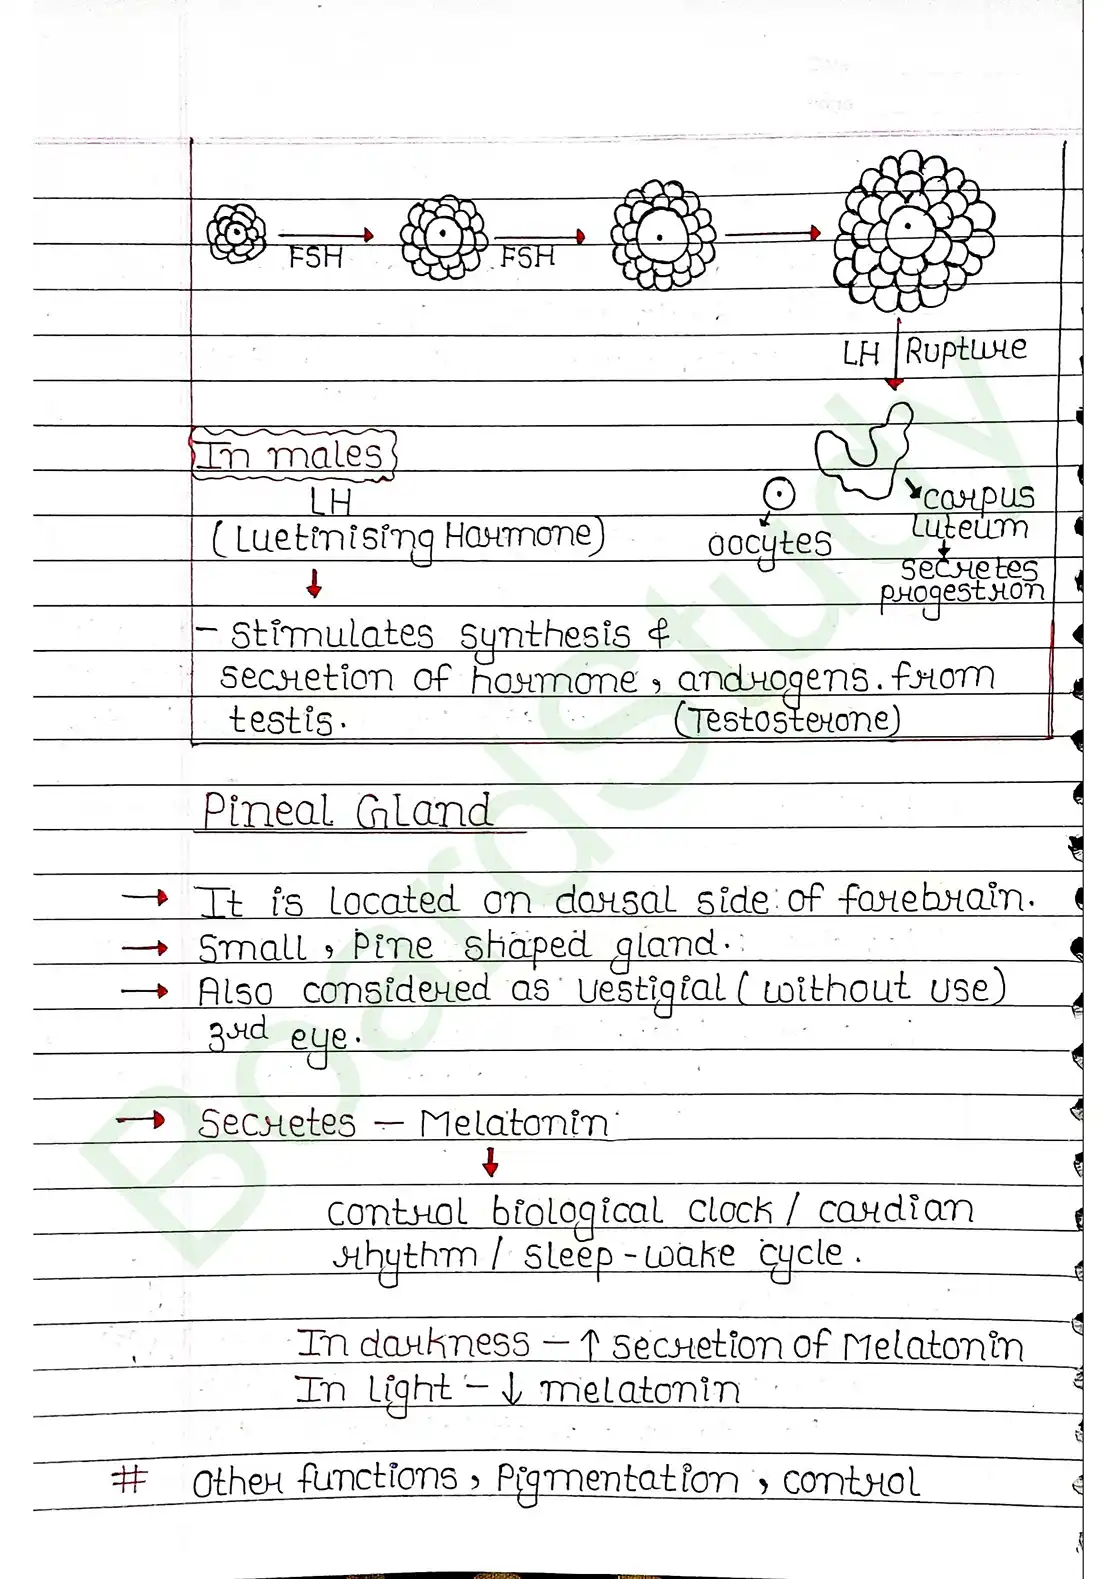 FSH
FSH
LH Rupture
In males
LH
(Luetinising Hormone)
oocytes
corpus
luteum
secretes
progestron
- stimulates synthesis &
secretion of hormone, androgens. from
testis. (Testosterone)
Pineal Gland
→ It is located on dorsal side of forebrain.
→ Small, Pine shaped gland.
→ Also considered as vestigial (without use)
3rd eye.
→ Secretes - Melatonin
control biological clock / cardian
rhythm / sleep-wake cycle.
In darkness - ↑ secretion of Melatonin
In light - ↓ melatonin
# Other functions, Pigmentation, control
BoardStudy